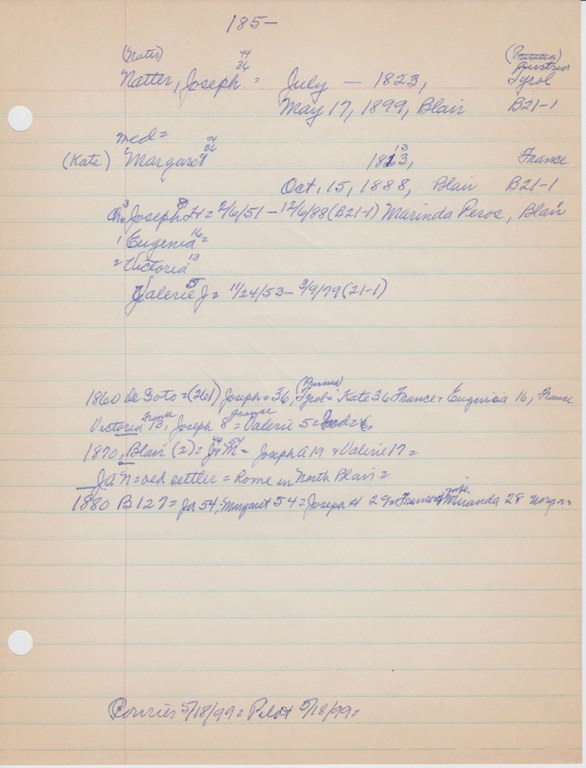 185-
(Nater) 44 36
Natter, Joseph = July — 1823, Tyrol
May 17, 1899, Blair B21-1
med=
(Kate) Margaret 44 36 1813, 3 France
Oct. 15, 1888, Blair B21-1
3 Joseph H 8 = 2/6/51 - 12/6/88 (B21-1) Marinda Peros, Blair
1 Eugenia 16 =
= Victoria 13
Valerie J 5 = 11/24/53 - 3/9/79 (21-1)
1860 De Soto = (261) Joseph = 36, Tyrol = Kate 36 France = Eugenia 16, France
Victoria 13, France Joseph 8 = France Valerie 5 =
1870, Blair (2) = 44 M 54 - Joseph A 19 + Valerie 17 =
= old settler = Rome in North Blair =
1880 B 127 = Jos 54, Margaret 54 = Joseph H 29 = France + wife Miranda 28
Courier 5/18/99 = Pilot 5/18/99 =